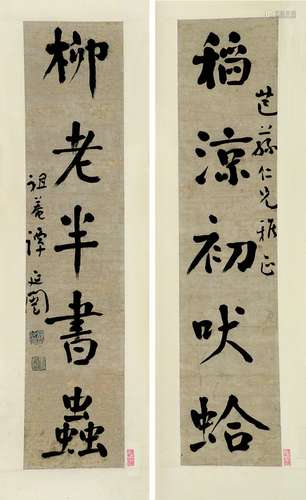 稻涼初吠蛤
芑蓀仁兄雅正
柳老半書蟲
祖菴譚延闓